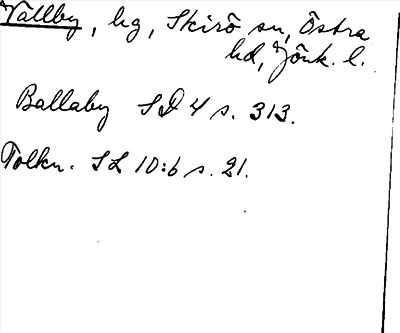 Vallby, hg, Skirö sn, Östra
hd, Jönk. l.
Ballaby SD 4 s. 313.
Tolkn. SL 10:6 s. 21.